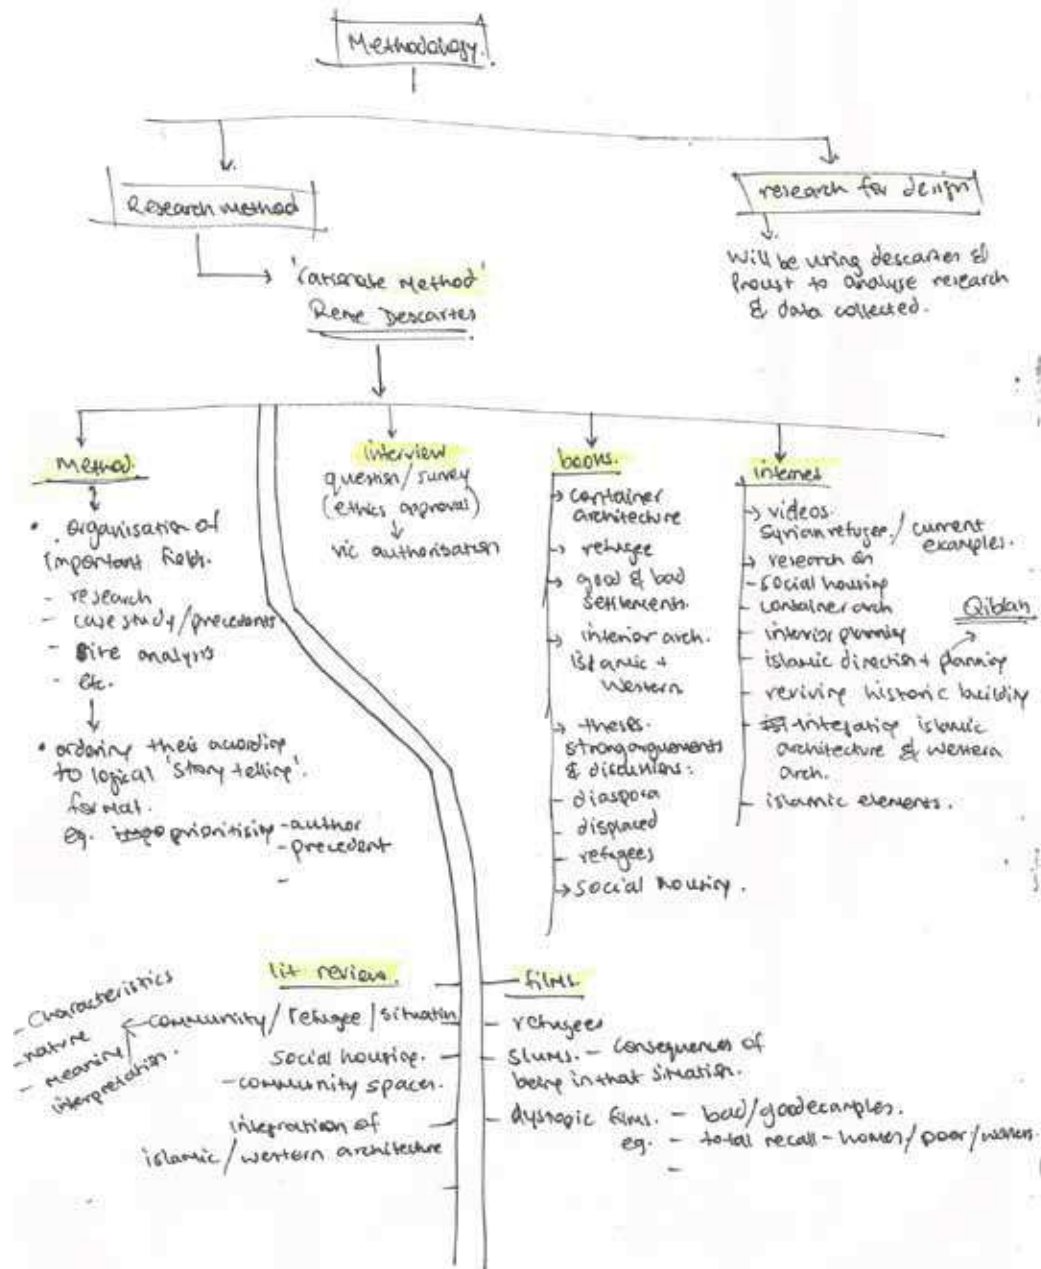 Methodology.
Research method
research for design
'rationale method'
Rene Descartes
Will be using descartes &
Proust to analyse research
& data collected.
method.
• organisation of
important fields.
- research
- case study/precedents
- site analysis
- etc.
• ordering thesis according
to logical 'story telling'.
format.
eg. prioritising - author
- precedent
-
interview
question/survey
(ethics approval)
vic authorisation
books.
→ container
architecture
→ refugee
→ good & bad
settlements.
→ interior arch.
islamic +
Western
→ theses.
strong arguements
& discussions:
- diaspora
- displaced
- refugees
→ social housing.
internet
→ videos.
Syrian refugee / current
examples.
→ research on
- social housing
- container arch
- interior planning
- islamic direction + planning
Qiblah
- reviving historic building
- integrating islamic
architecture & western
arch.
- islamic elements.
lit review.
community/refugee/situation
- characteristics
- nature
- meaning/
interpretation.
social housing.
- community spaces.
integration of
islamic/western architecture
films
- refugees
- slums. - consequences of
being in that situation.
- dystopic films. - bad/good examples.
eg. - total recall - homes/poor/
-